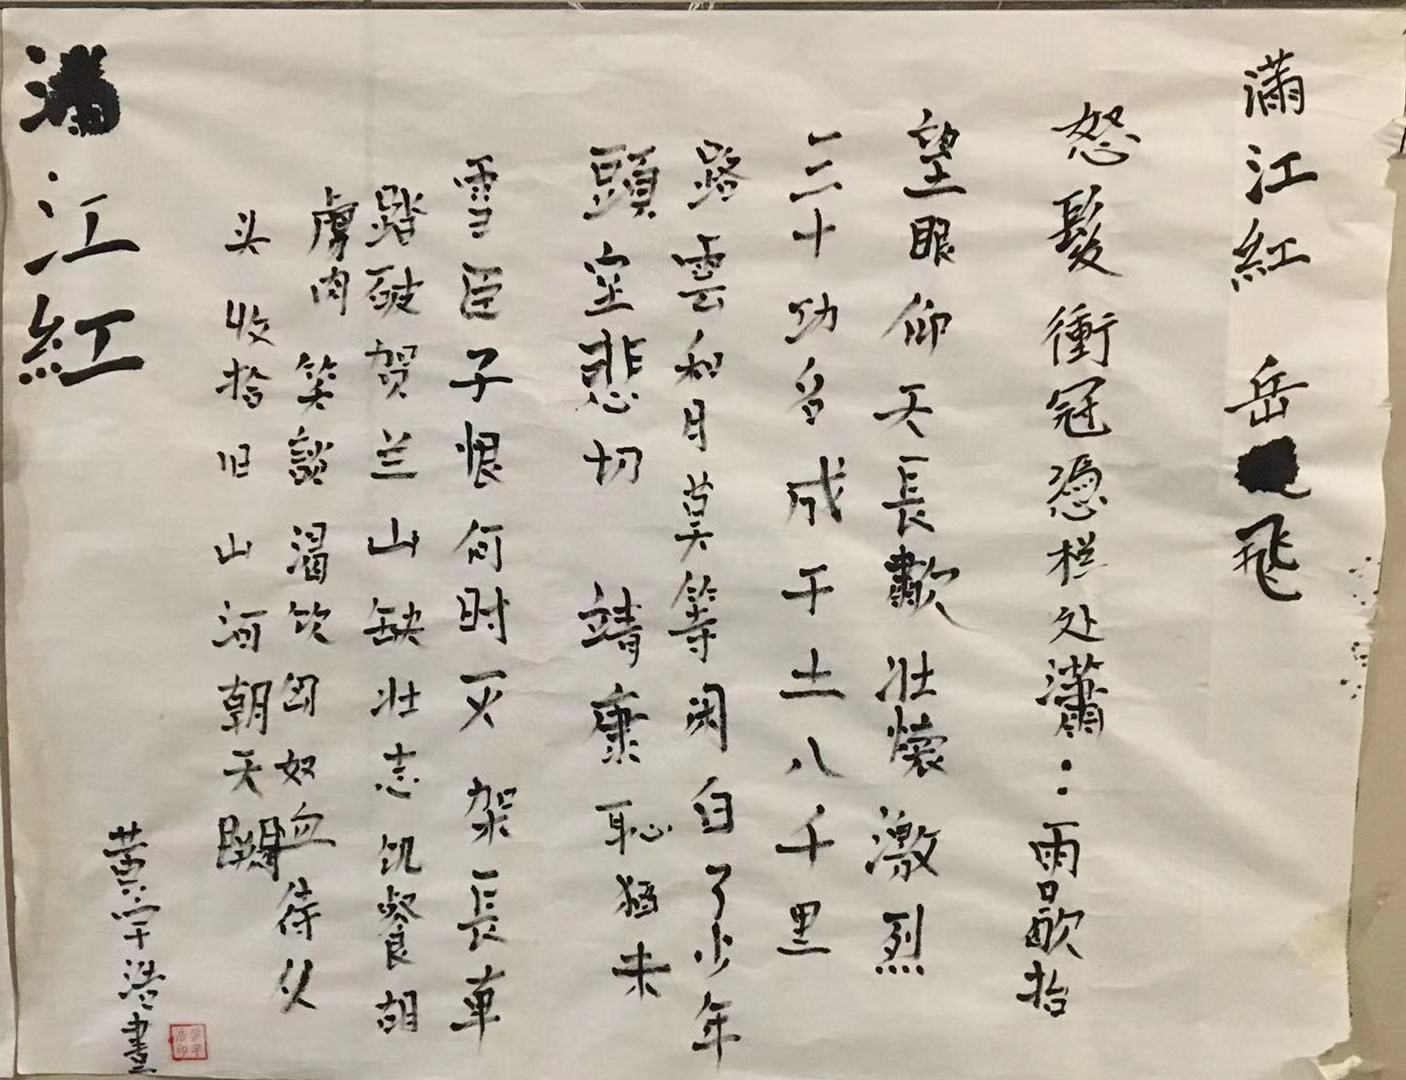 滿江紅 岳飛
怒髮衝冠憑栏处瀟：雨歇抬
望眼仰天長歎壮懷激烈
三十功名成干土八千里
路雲和月莫等闲白了少年
頭空悲切 靖康恥猶未
雪臣子恨何时灭 架長車
踏破贺兰山缺壮志饥餐胡
虜肉 笑談渴饮匈奴血待从
头收拾旧山河朝天闕
黄宇浩書
满江紅